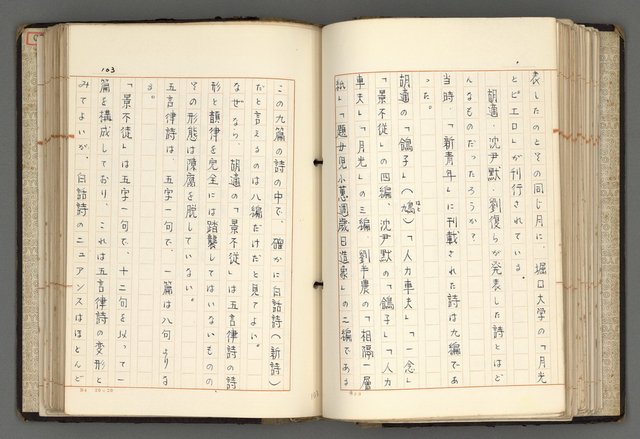 表したのとその同じ月に、堀口大学の「月光
とピエロ」が刊行されている。
胡適、沈尹默、劉復らが発表した詩とはど
んなものだったろうか?
当時、「新青年」に刊載された詩は九編であ
った。
胡適の「鴿子」(鳩)「人力車夫」「一念」
「景不徙」の四編、沈尹默の「鴿子」「人力
車夫」「月光」の三編、劉半農の「相隔一層
紙」「題女児小蕙週歳日造象」の二編である
103
この九篇の詩の中で、確かに白話詩(新詩)
だと言えるのは八編だけだと見てよい。
なぜなら、胡適の「景不徙」は五言律詩の詩
形と韻律を完全には踏襲してはいないものの
その形態は陳腐を脱していない。
五言律詩は、五字一句で、一篇は八句よりな
る。
「景不徙」は五字一句で、十二句を以って一
篇を構成しており、これは五言律詩の変形と
みてよいが、白話詩のニュアンスはほとんど